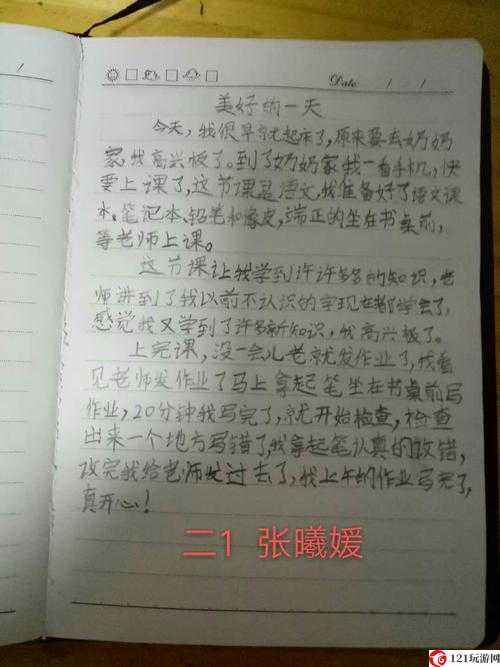 Date / /
美好的一天
今天,我很早就起床了,原来要去奶奶
家,我高兴极了。到了奶奶家我一看手机,快
要上课了,这节课是语文,我准备好了语文课
本、笔记本、铅笔和橡皮,端正的坐在书桌前,
等老师上课。
这节课让我学到许许多多的知识,老
师讲到了我以前不认识的字现在都学会了,
感觉我又学到了许多新知识,我高兴极了。
上完课,没一会儿老就发作业了,我看
见老师发作业了马上拿起笔坐在书桌前写
作业,20分钟我写完了,就开始检查,检查
出来一个地方写错了,我拿起笔认真的改错,
改完我给老师发过去了,我上午的作业写完了,
真开心!
二1 张曦媛
121玩游网